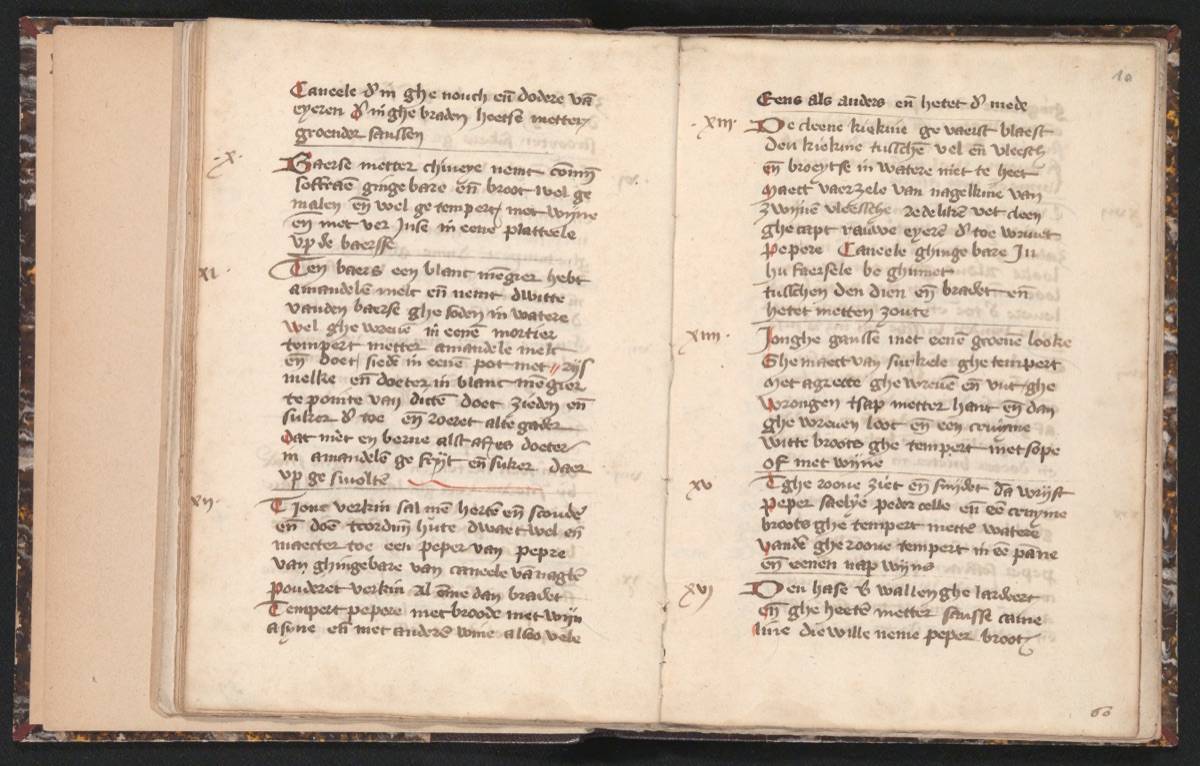 Caneele đ in ghe nouch en̄ dodere vā
eyeren đ in ghe braden heetse metter
groender saussen
.x.
Baerse metter chiueye nemt comijn
soffraen ginge bare en̄ broot wel ge
malen en̄ wel ge tempert met wijne
en̄ met ver iuse in eene platteele
vp de baersse
XI.
Ten baers een blanc mēgier hebt
amandelē melc en̄ nemt dwitte
vanden baerse ghe soden in watere
wel ghe wreuē in eenē mortier
tempert metter amandele melc
en̄ doet siedē in eenē pot met rijs
melke en̄ doeter in blanc mēgier
te pointe van dictē doet zieden en̄
suker đ toe en̄ roeret alte gader
dat mēt en berne alst af es doeter
in amandelē ge seyt en̄ suker daer
vp ge smolte
xij.
Tione verkin sal mē hertē en̄ scoudē
en̄ doē tcordun hute dwaet wel en̄
maecter toe een peper van pepre
van ghingebare van caneele vā naglē
pouderet verkin al ōme dan bradet
Tempert pepere met broode met wijn
asyne en̄ met anderē wine also vele
10
Eens als anders en̄ hetet đ mede
.xiij.
De cleene kiekine ge vaerst blaest
den kiekine tusschē vel en̄ vleesch
en̄ broeytse in watere niet te heet
Maect vaerzele van nagelkine van
zwijnē vleessche redelikē vet cleen
ghe capt rauwe eyerē đ toe wriuet
Pepere Caneele ghinge bare In
hu faersele be ghinnet
tusschen den dien en̄ bradet en̄
hetet metten zoute
xiiij.
Jonghe gansse met eenē groenē looke
Ghe maect van surkele ghe tempert
Met agrecte ghe wreuē en̄ vut ghe
wrongen tsap metter hant en̄ dan
ghe wreuen loot en̄ een cruyme
witte broots ghe tempert met sope
of met wijne
xv
Tghe roove ziet en̄ snydet dā wrijft
peper saelye peder celle en̄ eē cruyme
broots ghe tempert mettē watere
vandē gheroove tempert in eē pāne
en̄ eenen nap wijns
xvj
Den hase đ wallen ghe lardeert
en̄ ghe heetē metter sausse came
line die wille neme peper broot
60